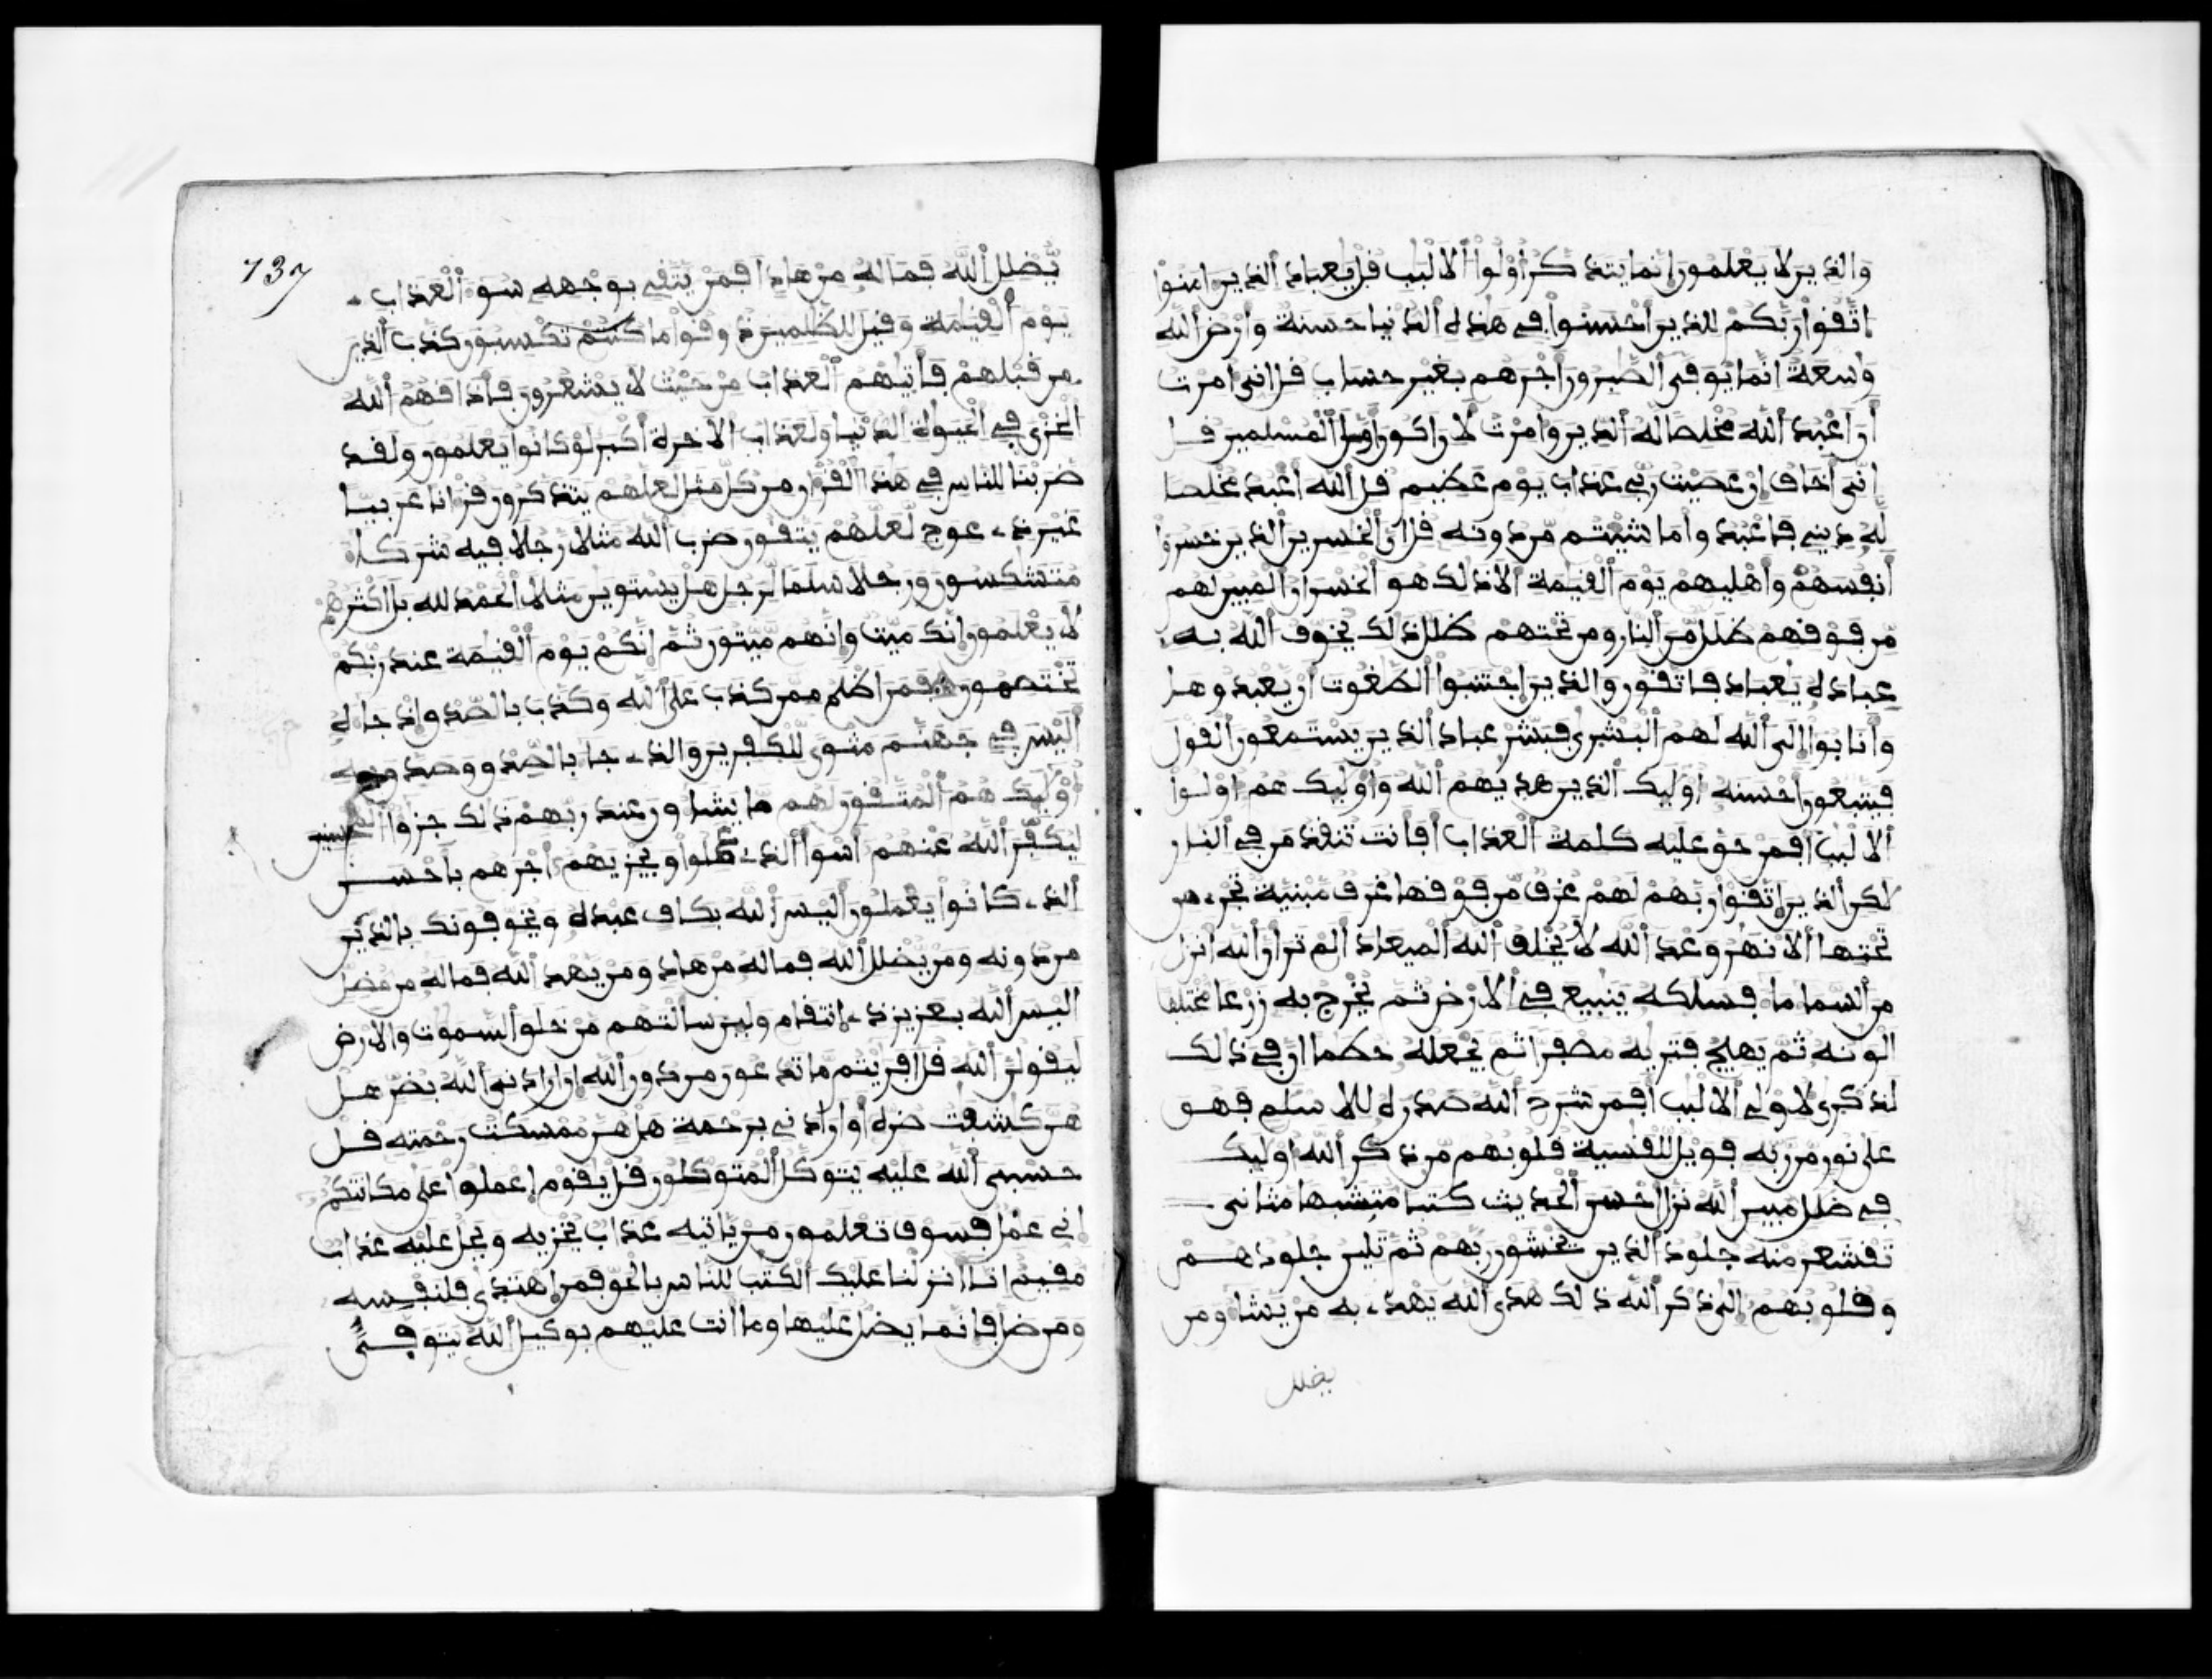 والذين لا يعلمون إنما يتذكر أولوا الالبب قل يعباد الذين ءامنوا
اتقوا ربكم للذين أحسنوا في هذه الدنيا حسنة وأرض الله
وسعة انما يوفى الصبرون أجرهم بغير حساب قل اني امرت
أن اعبد الله مخلصا له الدين وامرت لان اكون أول المسلمين قل
اني أخاف إن عصيت ربي عذاب يوم عظيم قل الله أعبد مخلصا
له ديني فاعبدوا ما شيتم من دونه قل ان الخسرين الذين خسروا
أنفسهم وأهليهم يوم القيمة الا ذلك هو الخسران المبين لهم
من فوقهم ظلل من النار ومن تحتهم ظلل ذلك يخوف الله به
عباده يعباد فاتقون والذين اجتنبوا الطغوت أن يعبدوها
وأنابوا إلى الله لهم البشرى فبشر عباد الذين يستمعون القول
فيتبعون أحسنه أوليك الذين هديهم الله وأوليك هم أولوا
الالبب أفمن حق عليه كلمة العذاب أفأنت تنقذ من في النار
لكن الذين اتقوا ربهم لهم غرف من فوقها غرف مبنية تجري من
تحتها الانهر وعد الله لا يخلف الله الميعاد ألم تر أن الله أنزل
من السما ما فسلكه ينبيع في الارض ثم يخرج به زرعا مختلفا
الونه ثم يهيج فتريه مصفرا ثم يجعله حطما ان في ذلك
لذكرى لاولي الالبب أفمن شرح الله صدره للاسلم فهو
على نور من ربه فويل للقسية قلوبهم من ذكر الله أوليك
في ضلل مبين الله نزل احسن الحديث كتبا متشبها مثاني
تقشعر منه جلود الذين يخشون ربهم ثم تلين جلودهم
وقلوبهم إلى ذكر الله ذلك هدى الله يهدي به من يشا ومن
يضلل
137
يضلل الله فما له من هاد أفمن يتقي بوجهه سو العذاب
يوم القيمة وقيل للظلمين ذوقوا ما كنتم تكسبون كذب الذين
من قبلهم فأتيهم العذاب من حيث لا يشعرون فأذاقهم الله
الخزي في الحيوة الدنيا ولعذاب الاخرة أكبر لو كانوا يعلمون ولقد
ضربنا للناس في هذا القران من كل مثل لعلهم يتذكرون قرانا عربيا
غير ذي عوج لعلهم يتقون ضرب الله مثلا رجلا فيه شركا
متشكسون ورجلا سلما لرجل هل يستوين مثلا الحمد لله بل اكثرهم
لا يعلمون إنك ميت وإنهم ميتون ثم إنكم يوم القيمة عند ربكم
تختصمون فمن اظلم ممن كذب على الله وكذب بالصدق إذ جاه
أليس في جهنم مثوى للكفرين والذي جا بالصدق وصدق به
أوليك هم المتقون لهم ما يشاون عند ربهم ذلك جزوا المحسنين
ليكفر الله عنهم أسوأ الذي عملوا ويجزيهم أجرهم بأحسن
الذي كانوا يعملون أليس الله بكاف عبده ويخوفونك بالذين
من دونه ومن يضلل الله فما له من هاد ومن يهد الله فما له من مضل
أليس الله بعزيز ذي انتقام ولين سألتهم من خلق السموت والارض
ليقولن الله قل أفريتم ما تدعون من دون الله إن ارادني الله بضر هل
هن كشفت ضره أو ارادني برحمة هل هن ممسكت رحمته قل
حسبي الله عليه يتوكل المتوكلون قل يقوم اعملوا على مكانتكم
إني عمل فسوف تعلمون من يأتيه عذاب يخزيه ويحل عليه عذاب
مقيم انا انزلنا عليك الكتب للناس بالحق فمن اهتدى فلنفسه
ومن ضل فإنما يضل عليها وما أنت عليهم بوكيل الله يتوفى